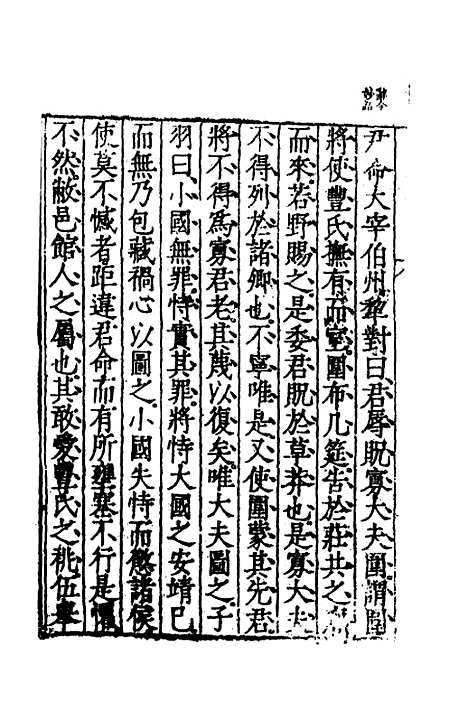 辭令
妙品
尹命大宰伯州犂對曰君辱貺寡大夫圍謂圍
將使豐氏撫有而室圍布几筵告於莊共之
而來若野賜之是委君貺於草莽也是寡大夫
不得列於諸卿也不寧唯是又使圍蒙其先君
將不得爲寡君老其蔑以復矣唯大夫圖之子
羽曰小國無罪恃實其罪將恃大國之安靖已
而無乃包藏禍心以圖之小國失恃而懲諸侯
使莫不憾者距違君命而有所壅塞不行是懼
不然敝邑館人之屬也其敢愛豐氏之祧伍舉